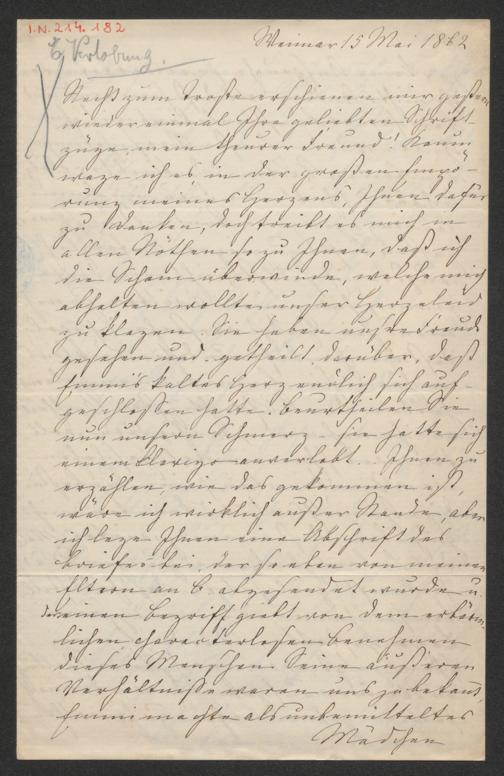 I.N. 214.182
Verlobung.
Weimar 15 Mai 1862
Recht zum Troste erschienen mir gestern
wieder einmal Ihre geliebten Schrift-
züge, mein theurer Freund! Kaum
wage ich es, in der großen Empö-
rung meines Herzens, Ihnen dafür
zu danken, doch treibt es mich in
allen Nöthen so zu Ihnen, daß ich
die Scham überwinde, welche mich
abhalten wollte unser Herzeleid
zu klagen. Sie haben unsre Freude
gesehen und getheilt darüber, daß
Emmis kaltes Herz endlich sich auf-
geschlossen hatte. Beurtheilen Sie
nun unsern Schmerz – sie hatte sich
einem Clavigo anverlobt. Ihnen zu
erzählen, wie das gekommen ist,
wäre ich wirklich außer Stande, aber
ich lege Ihnen eine Abschrift des
Briefes bei, der soeben von meinen
Eltern an B. abgesendet wurde u.
Ihnen einen Begriff giebt von dem erbärm-
lichen charakterlosen Benehmen
dieses Menschen. Seine äußeren
Verhältnisse waren uns zu bekannt,
Emmi machte als unbemitteltes
Mädchen